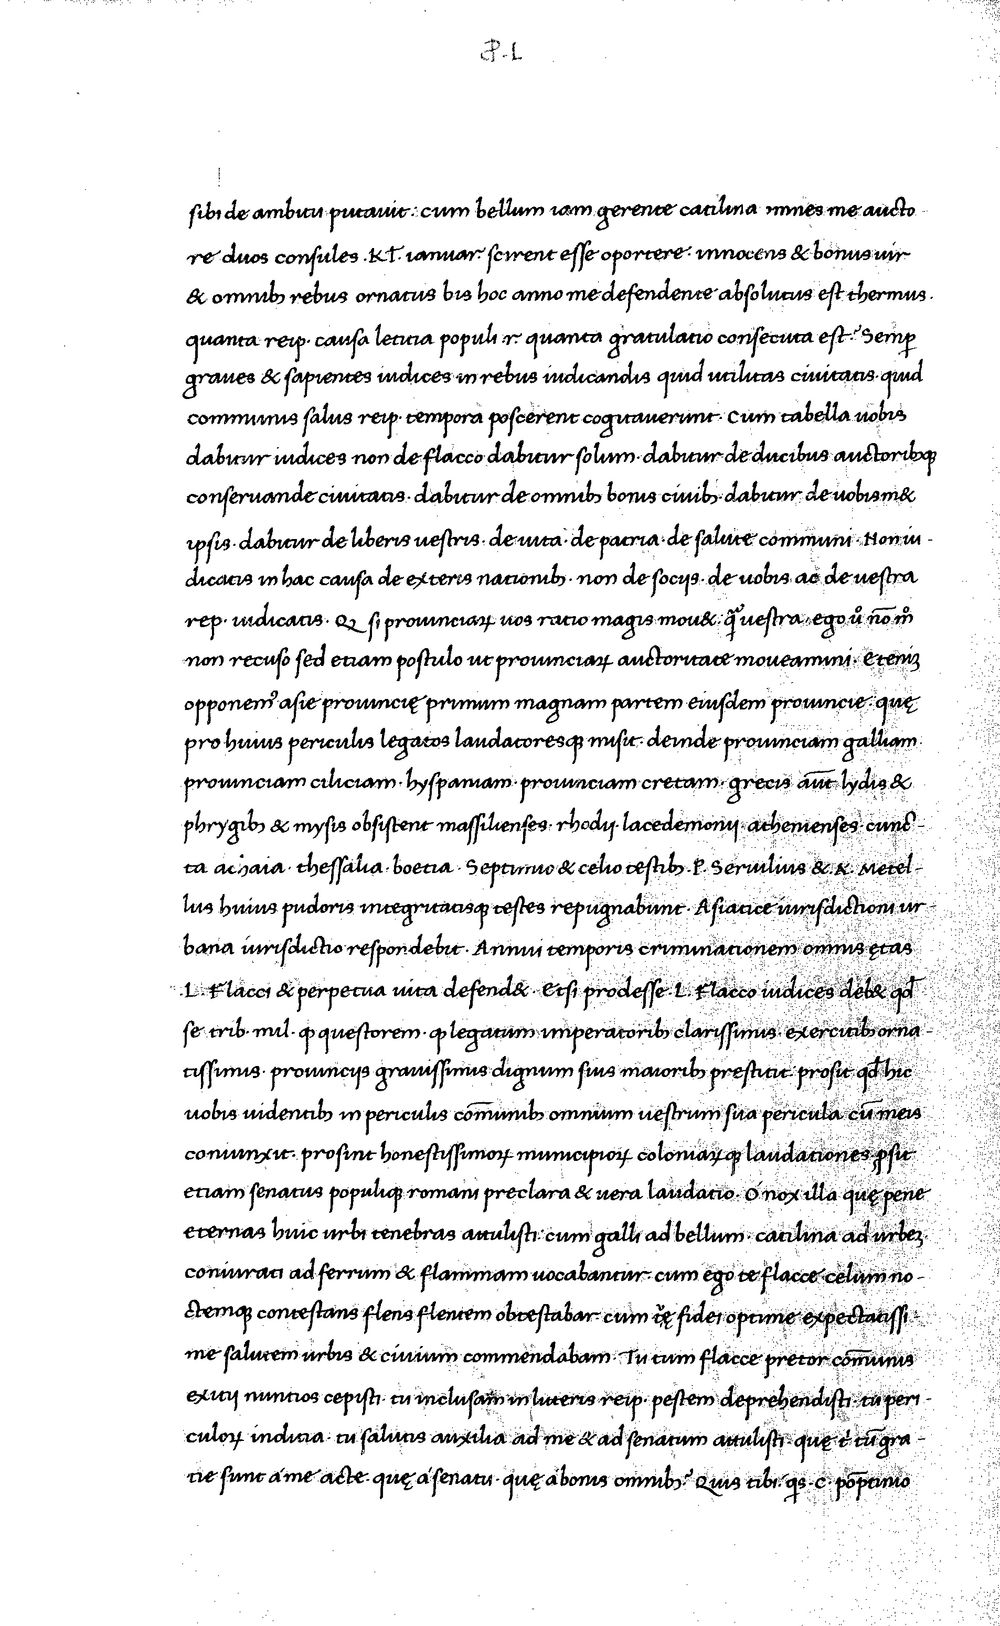 P. L
sibi de ambitu putavit: cum bellum iam gerente catilina mnes me aucto
re duos consules. Kł. ianuar. scirent esse oportere. innocens & bonus uir
& omnib; rebus ornatus bis hoc anno me defendente absolutus est thermus.
quanta reip. causa letitia populi r. quanta gratulatio consecuta est? Semp̄
graues & sapientes iudices in rebus iudicandis quid utilitas ciuitatis. quid
communis salus reip. tempora poscerent cogitauerunt. Cum tabella uobis
dabitur iudices non de flacco dabitur solum. dabitur de ducibus auctorib;q;
conseruande ciuitatis. dabitur de omnib; bonis ciuib; dabitur de uobism&
ipsis. dabitur de liberis uestris. de uita. de patria. de salute communi. Non iu-
dicatis in hac causa de exteris nationib;. non de socijs. de uobis ac de uestra
rep. iudicatis. Q si prouinciaꝝ uos ratio magis mou& quā uestra. ego ů nō m̊
non recuso sed etiam postulo ut prouinciaꝝ auctoritate moueamini. Eteniꝫ
opponem᾽ asie prouincię primum magnam partem eiusdem prouincie. quę
pro huius periculis legatos laudatoresq; misit. deinde prouinciam galliam.
prouinciam ciliciam. hyspaniam. prouinciam cretam. grecis aūt lydis &
phrygib; & mysis obsistent massilienses. rhodij. lacedemonij. athenienses. cunc-
ta achaia. thessalia. boetia. Septimio & celio testib;. P. Seruilius & .K. Metel-
lus huius pudoris integritatisq; testes repugnabunt. Asiatice iurisdictioni ur-
bana iurisdictio respondebit. Annui temporis criminationem omnis ętas
.L. Flacci & perpetua uita defend&. Etsi prodesse .L. Flacco iudices deb& qđ
se trib. mil. ꝙ questorem. ꝙ legatum imperatorib; clarissimis. exercitib; orna-
tissimis. prouincijs grauissimis dignum suis maiorib; prestitit. prosit qđ hic
uobis uidentib; in periculis com̄unib; omnium uestrum sua pericula cū meis
coniunxit. prosint honestissimoꝝ municipioꝝ coloniaꝝq; laudationes ꝓsit
etiam senatus populiq; romani preclara & uera laudatio. O nox illa quę pene
eternas huic urbi tenebras attulisti. cum galli ad bellum. catilina ad urbeꝫ.
coniurati ad ferrum & flammam uocabantur. cum ego te flacce celum no-
ctemq; contestans flens flentem obtestabar. cum tę fidei optime expectatissi-
me salutem urbis & ciuium commendabam. Tu tum flacce pretor com̄unis
exitij nuntios cepisti. tu inclusam in litteris reip. pestem deprehendisti. tu peri-
culoꝝ inditia. tu salutis auxilia ad me & ad senatum attulisti. quę t̊ tū gra-
tie sunt a me acte. quę a senatu. quę a bonis omnib;? Quis tibi. qs. C. pōptinio